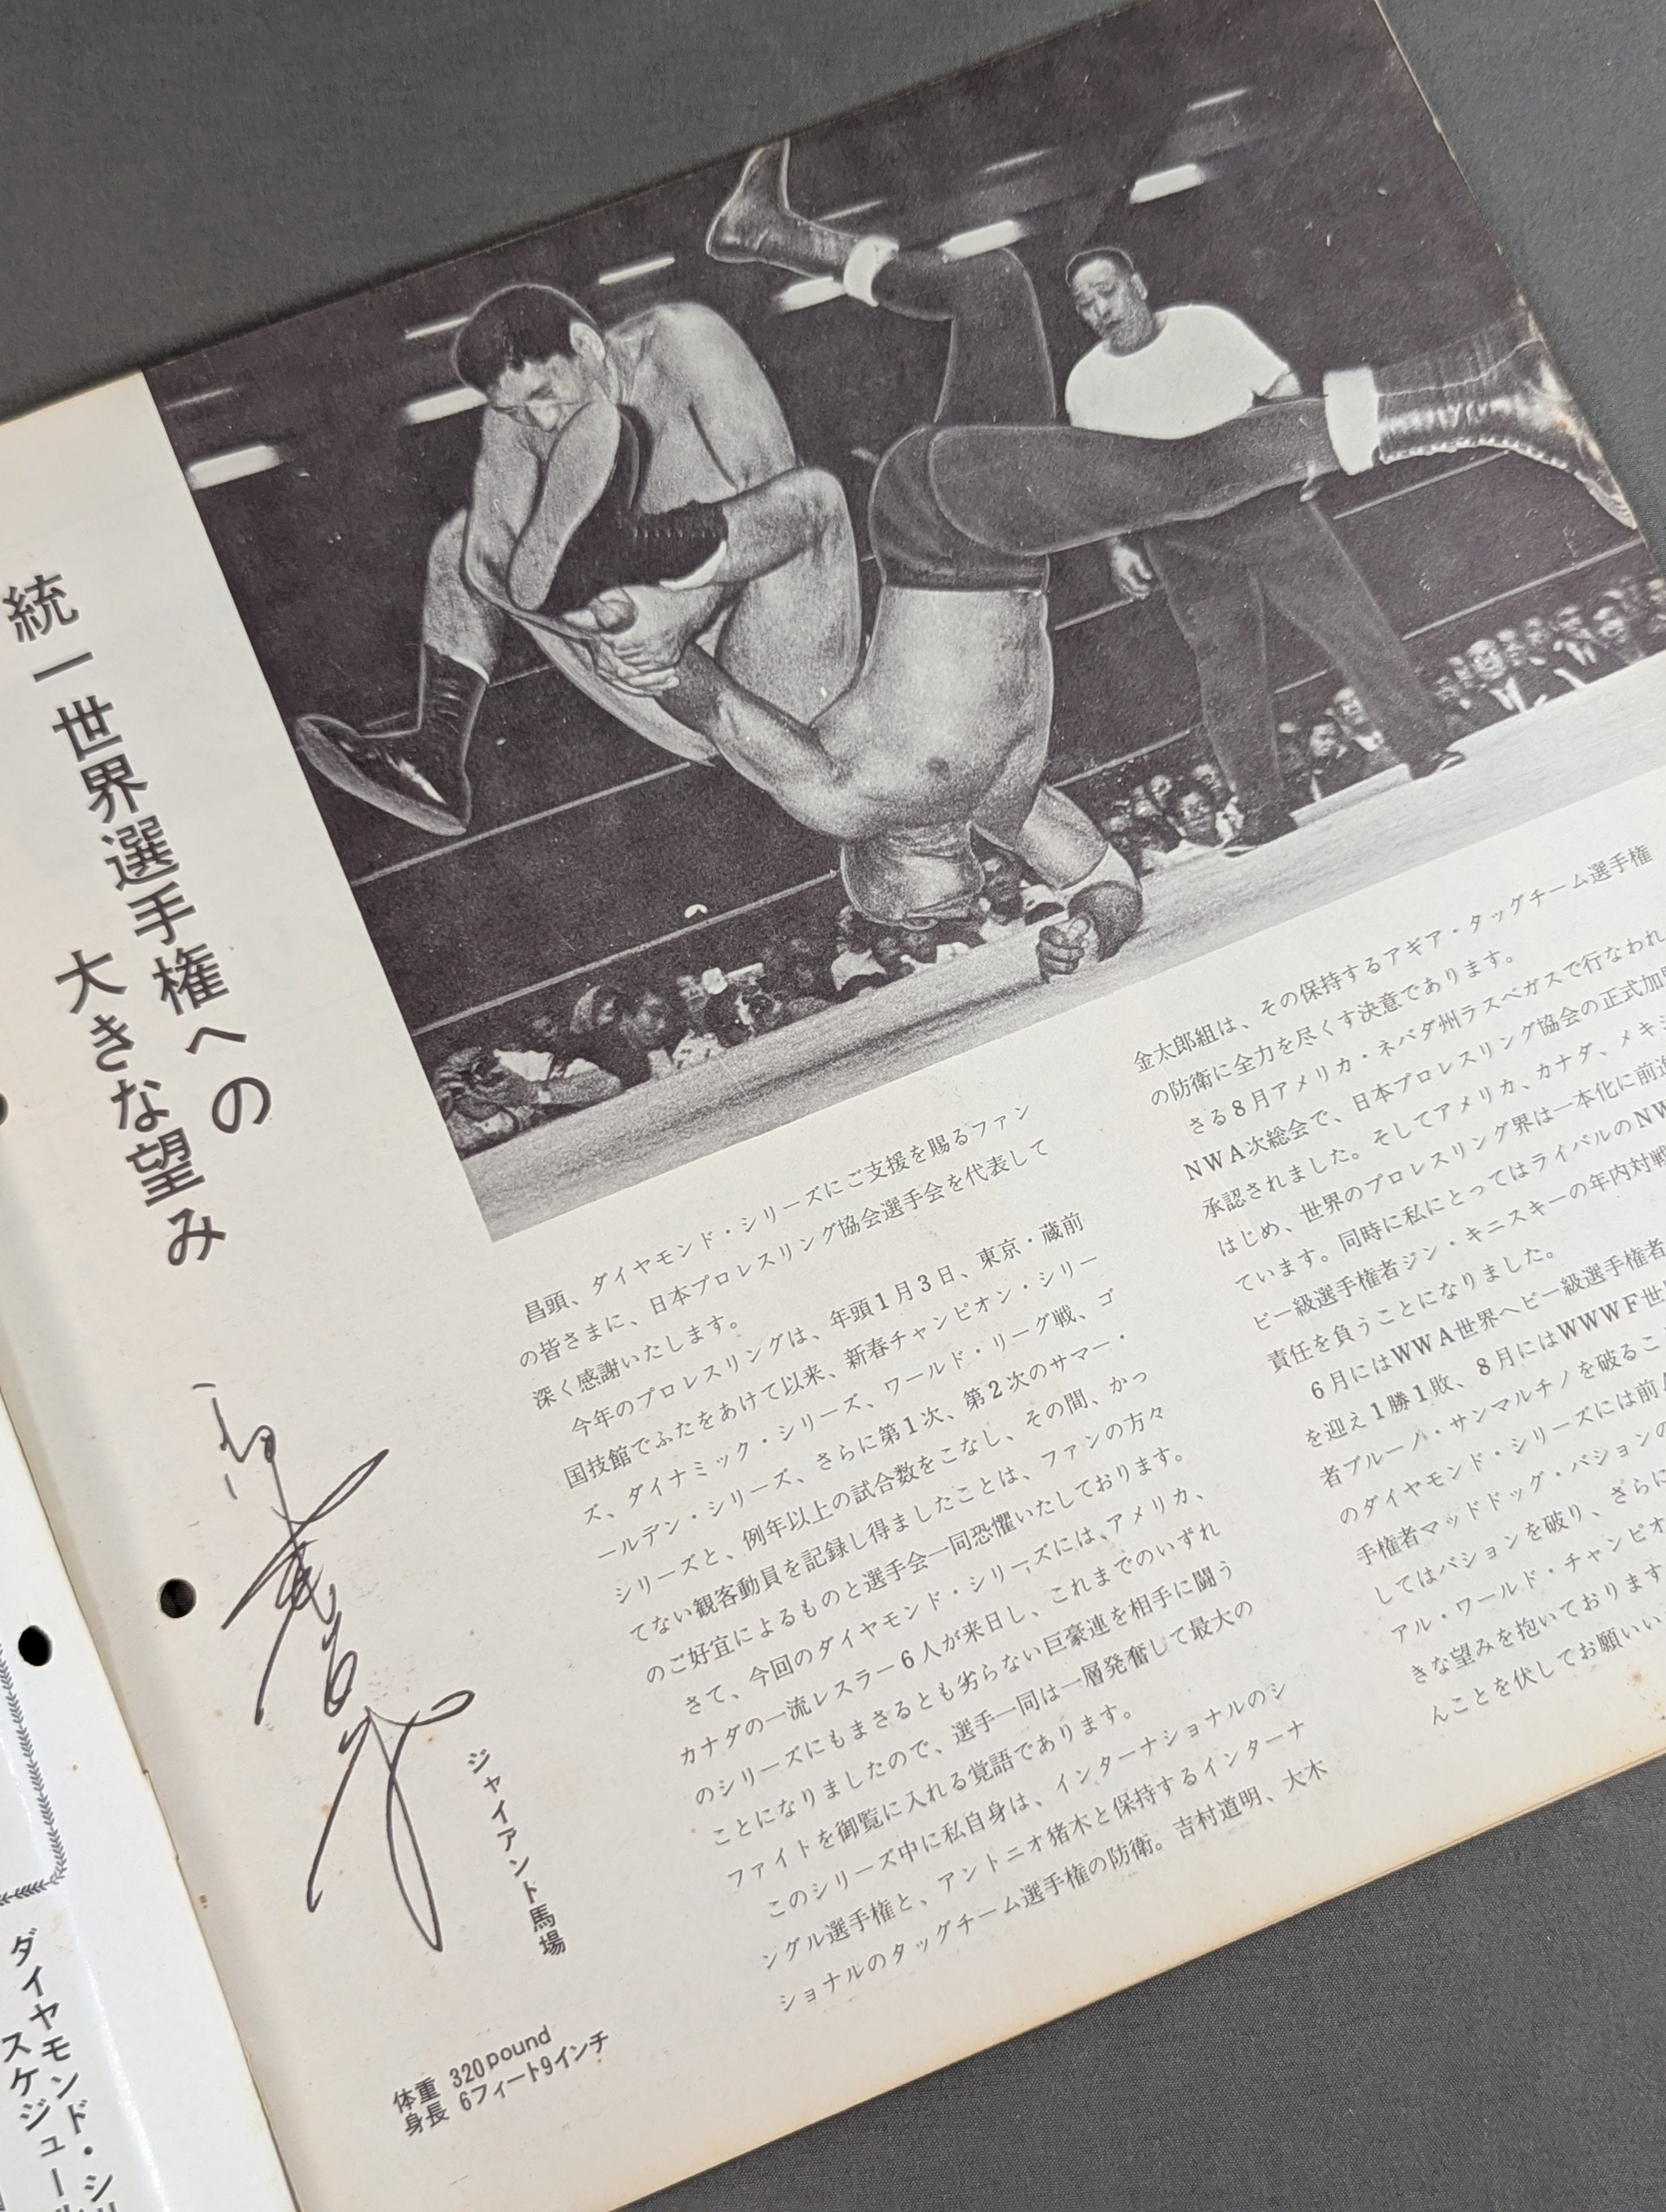 統一世界選手権への
大きな望み
ジャイアント馬場
体重 320pound
身長 6フィート9インチ
昌頭、ダイヤモンド・シリーズにご支援を賜るファン
の皆さまに、日本プロレスリング協会選手会を代表して
深く感謝いたします。
今年のプロレスリングは、年頭1月3日、東京・蔵前
国技館でふたをあけて以来、新春チャンピオン・シリー
ズ、ダイナミック・シリーズ、ワールド・リーグ戦、ゴ
ールデン・シリーズ、さらに第1次、第2次のサマー・
シリーズと、例年以上の試合数をこなし、その間、かっ
てない観客動員を記録し得ましたことは、ファンの方々
のご好宜によるものと選手会一同恐懼いたしております。
さて、今回のダイヤモンド・シリーズには、アメリカ、
カナダの一流レスラー6人が来日し、これまでのいずれ
のシリーズにもまさるとも劣らない巨豪連を相手に闘う
ことになりましたので、選手一同は一層発奮して最大の
ファイトを御覧に入れる覚語であります。
このシリーズ中に私自身は、インターナショナルのシ
ングル選手権と、アントニオ猪木と保持するインターナ
ショナルのタッグチーム選手権の防衛。吉村道明、大木
金太郎組は、その保持するアギア・タッグチーム選手権
の防衛に全力を尽くす決意であります。
さる8月アメリカ・ネバダ州ラスベガスで行なわれ
NWA次総会で、日本プロレスリング協会の正式加盟
承認されました。そしてアメリカ、カナダ、メキシ
はじめ、世界のプロレスリング界は一本化に前進
ています。同時に私にとってはライバルのNW
ビー級選手権者ジン・キニスキーの年内対戦
責任を負うことになりました。
6月にはWWA世界ヘビー級選手権者
を迎え1勝1敗、8月にはWWWF世
者ブルーノ・サンマルチノを破るこ
のダイヤモンド・シリーズには前
手権者マッドドッグ・バションの
してはバションを破り、さらに
アル・ワールド・チャンピオ
きな望みを抱いております
んことを伏してお願いい
ダイヤモンド・シリ
スケジュール